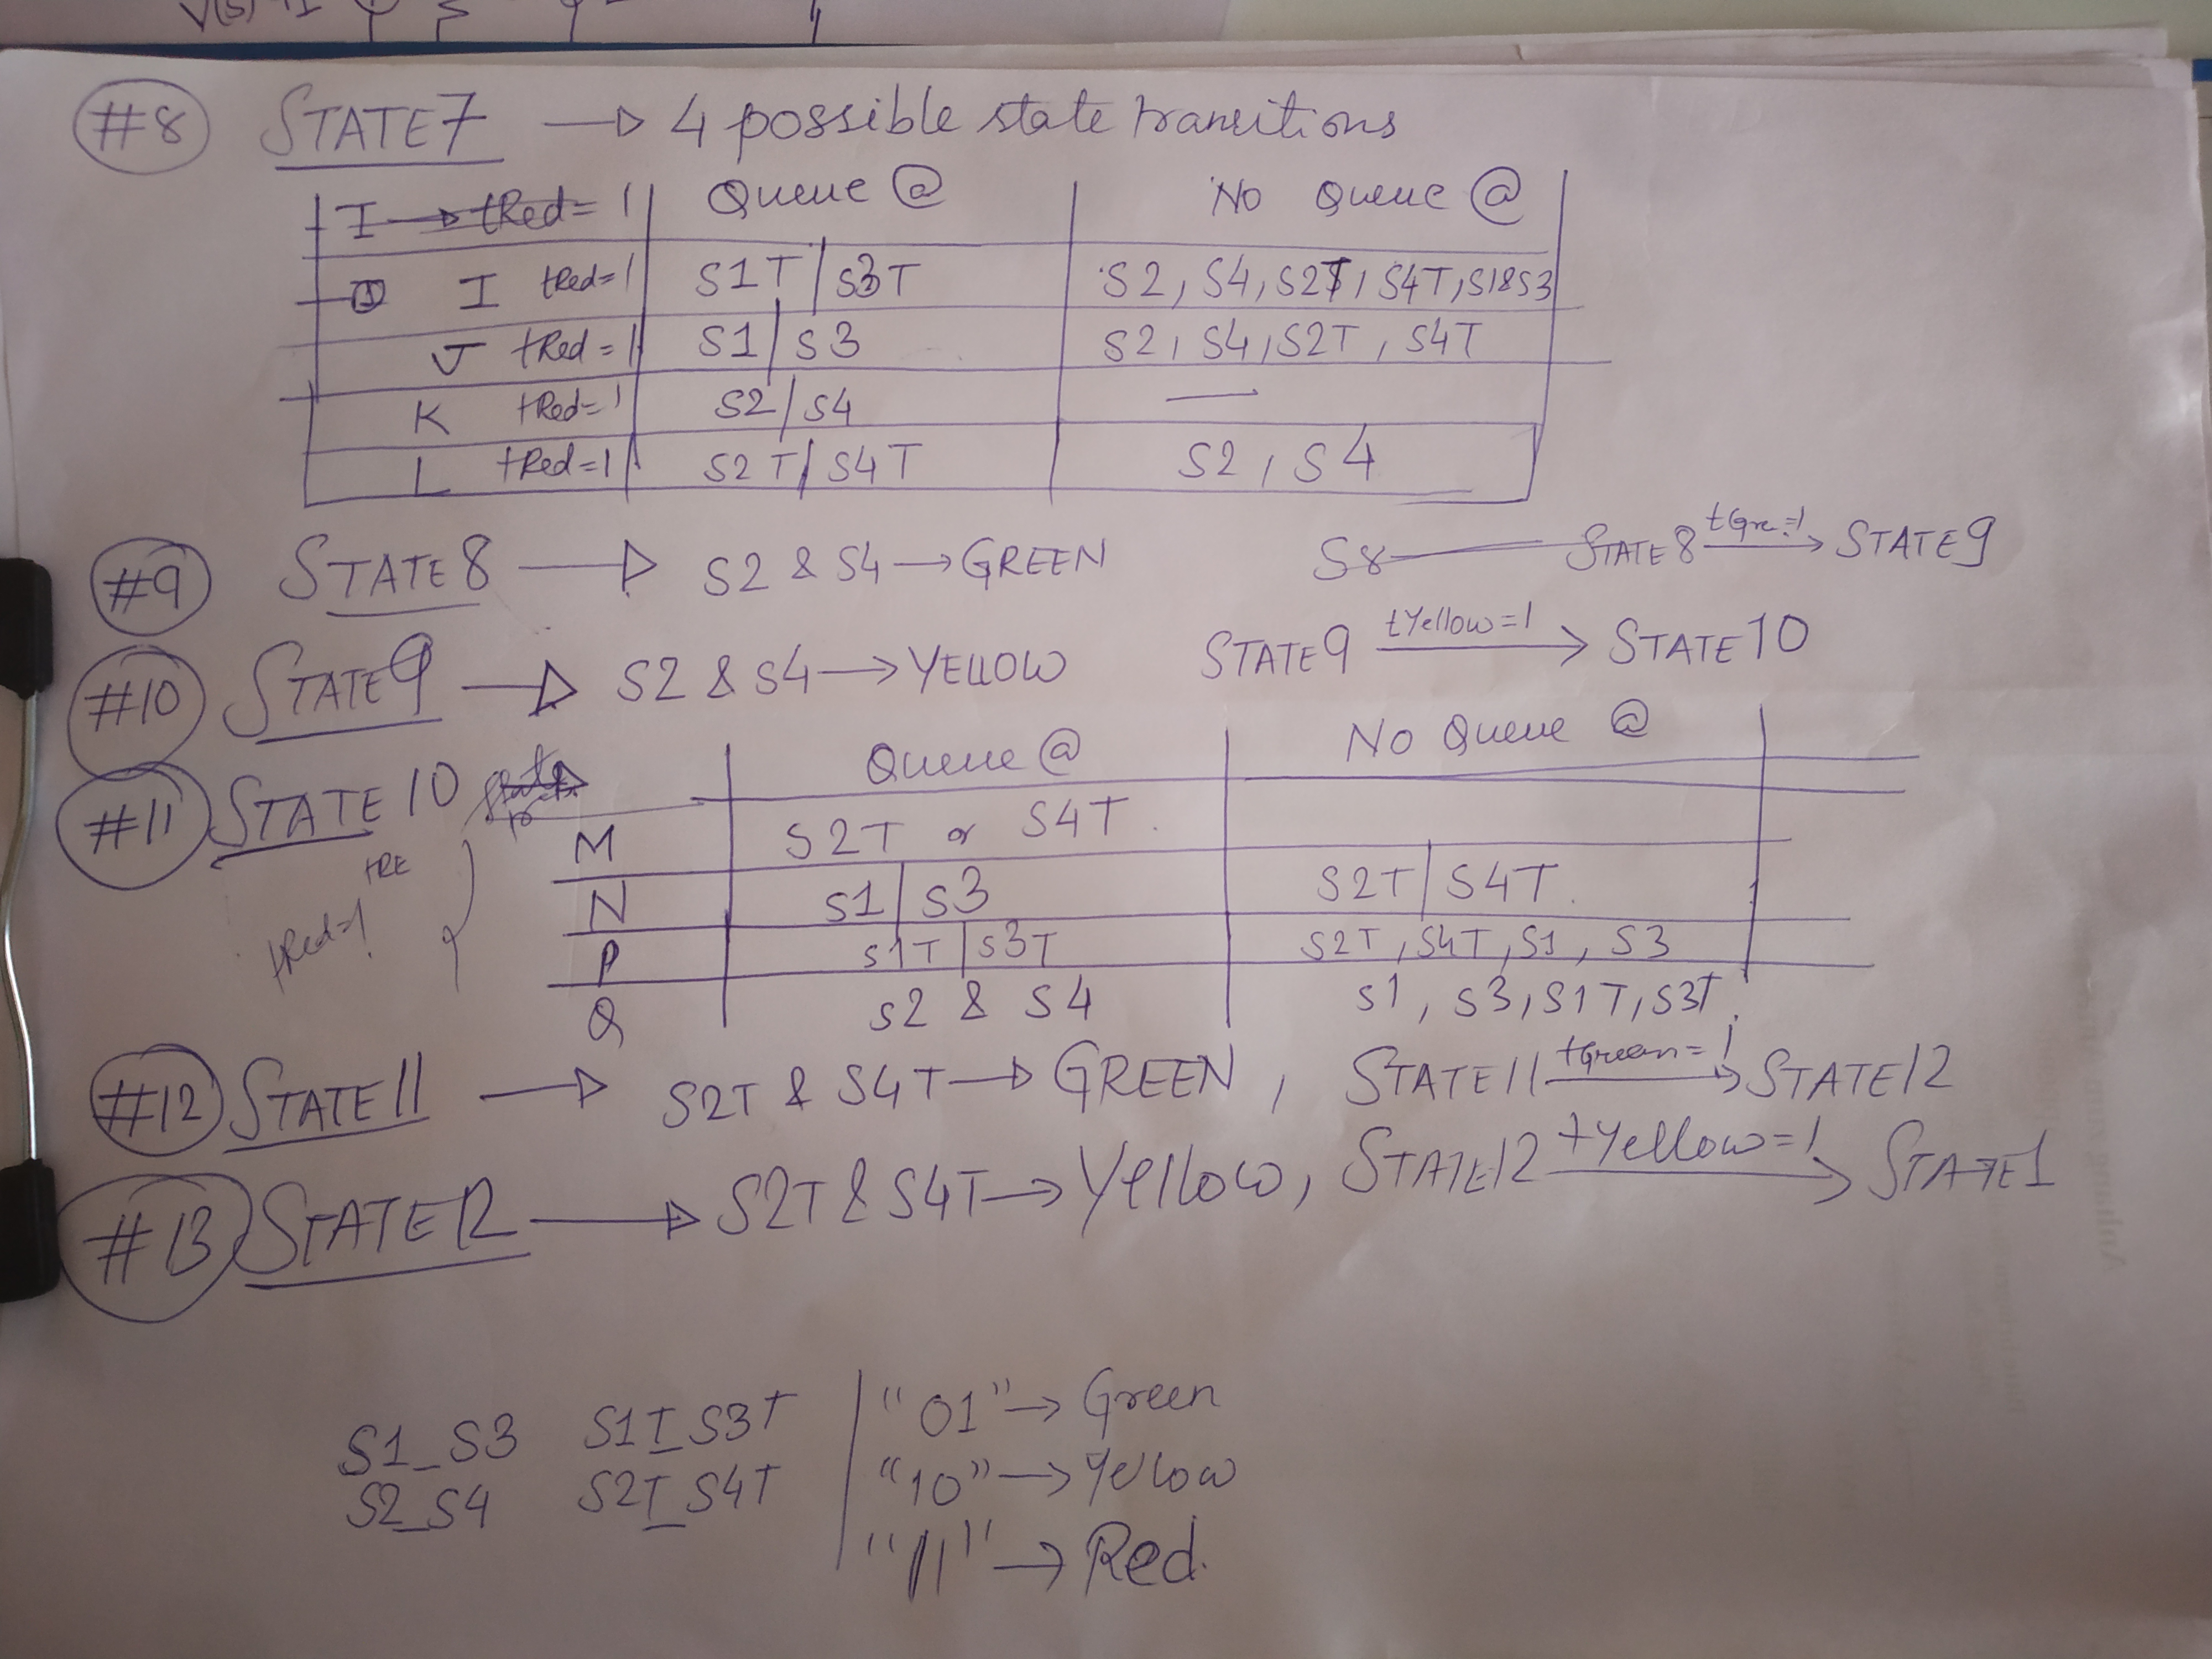 V(s)
#8 STATE7 → 4 possible state transitions
I → tRed=1 Queue @ No Queue @
I tRed=1 S1T/S3T S2, S4, S2T, S4T, S1&S3
J tRed=1 S1/S3 S2, S4, S2T, S4T
K tRed=1 S2/S4 —
L tRed=1 S2T/S4T S2, S4
#9 STATE8 → S2 & S4 → GREEN S8 STATE8 tGre=1 → STATE9
#10 STATE9 → S2 & S4 → YELLOW STATE9 tYellow=1 → STATE10
#11 STATE10 Queue @ No Queue @
M S2T or S4T.
tRE
N S1/S3 S2T/S4T.
tRed=1
P S1T/S3T S2T, S4T, S1, S3
Q S2 & S4 S1, S3, S1T, S3T.
#12 STATE11 → S2T & S4T → GREEN, STATE11 tGreen=1 → STATE12
#13 STATE12 → S2T & S4T → Yellow, STATE12 tYellow=1 → STATE1
S1_S3 S1T_S3T "01" → Green
S2_S4 S2T_S4T "10" → Yellow
"11" → Red.